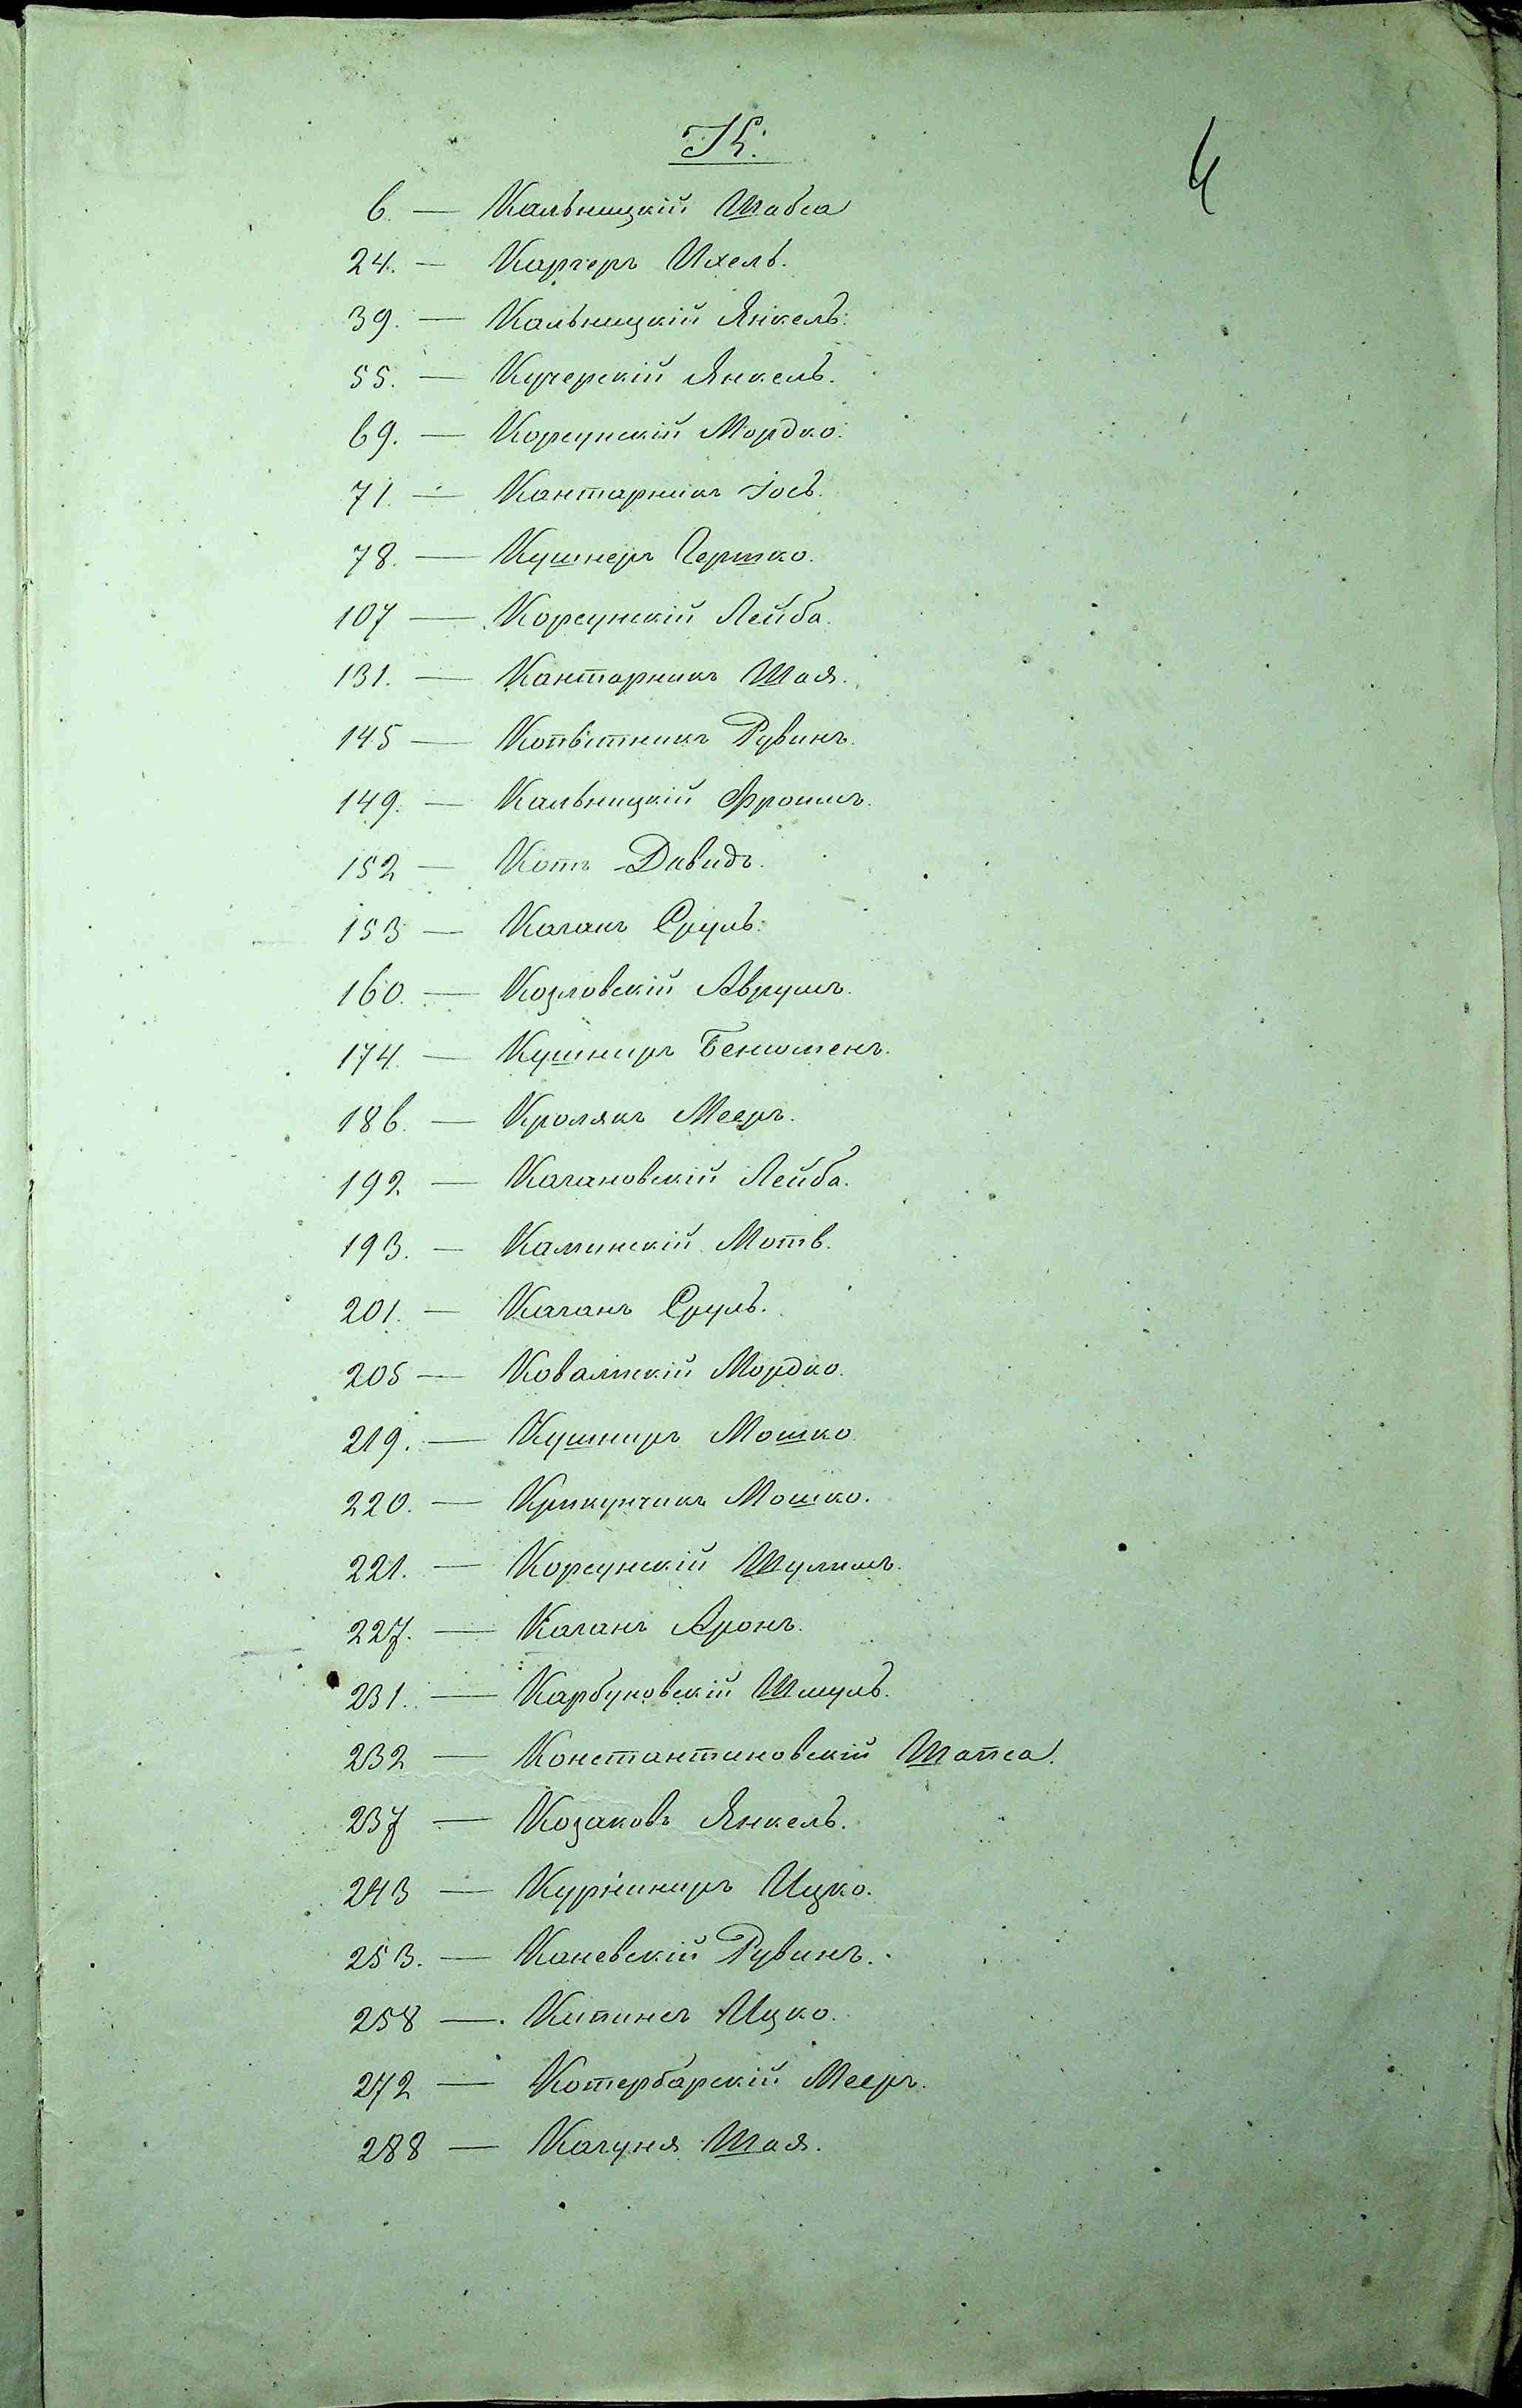 К.
4
6. — Кальницкій Шабса
24. — Карчеръ Ихель.
39. — Кальницкій Янкель.
55. — Кучерскій Янкель.
69. — Корсунскій Мордко.
71. — Кантарникъ Іось.
78. — Кушнеръ Гершко.
107 — Корсунскій Лейба.
131. — Кантарникъ Шая.
145 — Копытникъ Рувинъ.
149. — Кальницкій Фроимъ.
152 — Котъ Давидъ.
153 — Каганъ Сруль.
160. — Козловскій Аврумъ.
174. — Кушниръ Беніоменъ.
186. — Кролякъ Мееръ.
192 — Кагановскій Лейба.
193. — Каминскій Мотъ.
201. — Каганъ Сруль.
205 — Ковалискій Мордко.
219. — Кушниръ Мошко
220. — Крикунчикъ Мошко.
221. — Корсунскій Шулимъ.
227. — Каганъ Аронъ.
231. — Карбуновскій Шмуль.
232 — Константиновскій Шапса.
237 — Козаковъ Янкель.
243 — Ицко.
253. — Каневскій Рувинъ.
258 — Кипинсъ Ицко.
272 — Котербарскій Мееръ.
288 — Кагуня Шая.